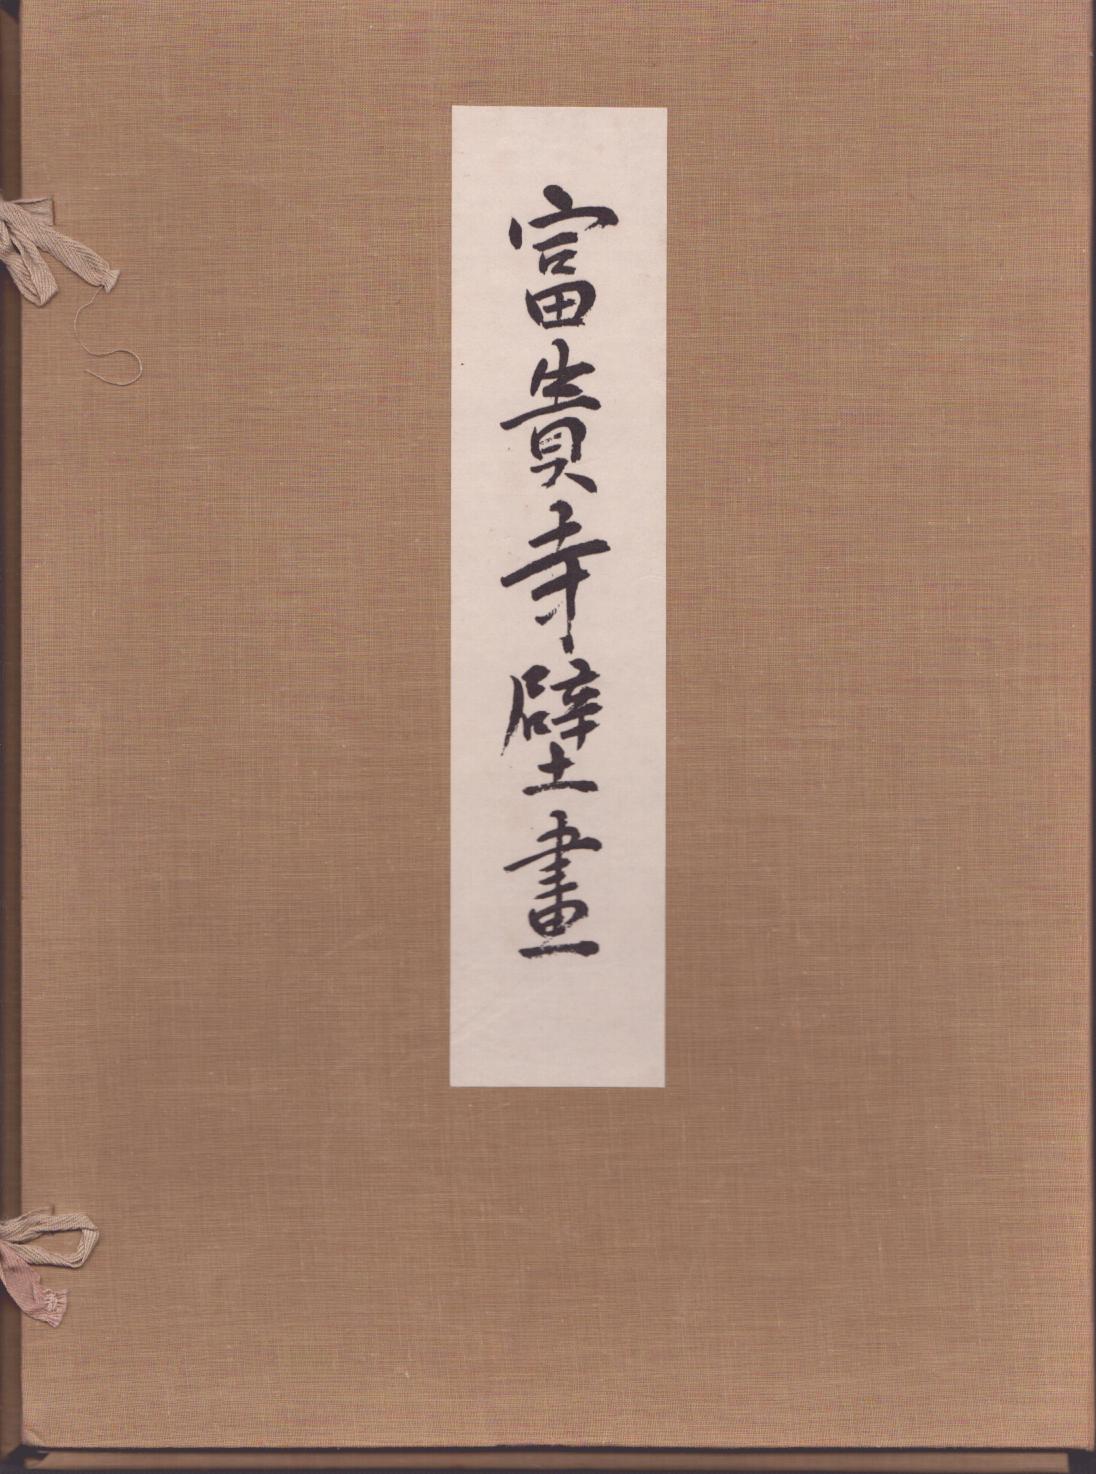 富貴寺壁畫